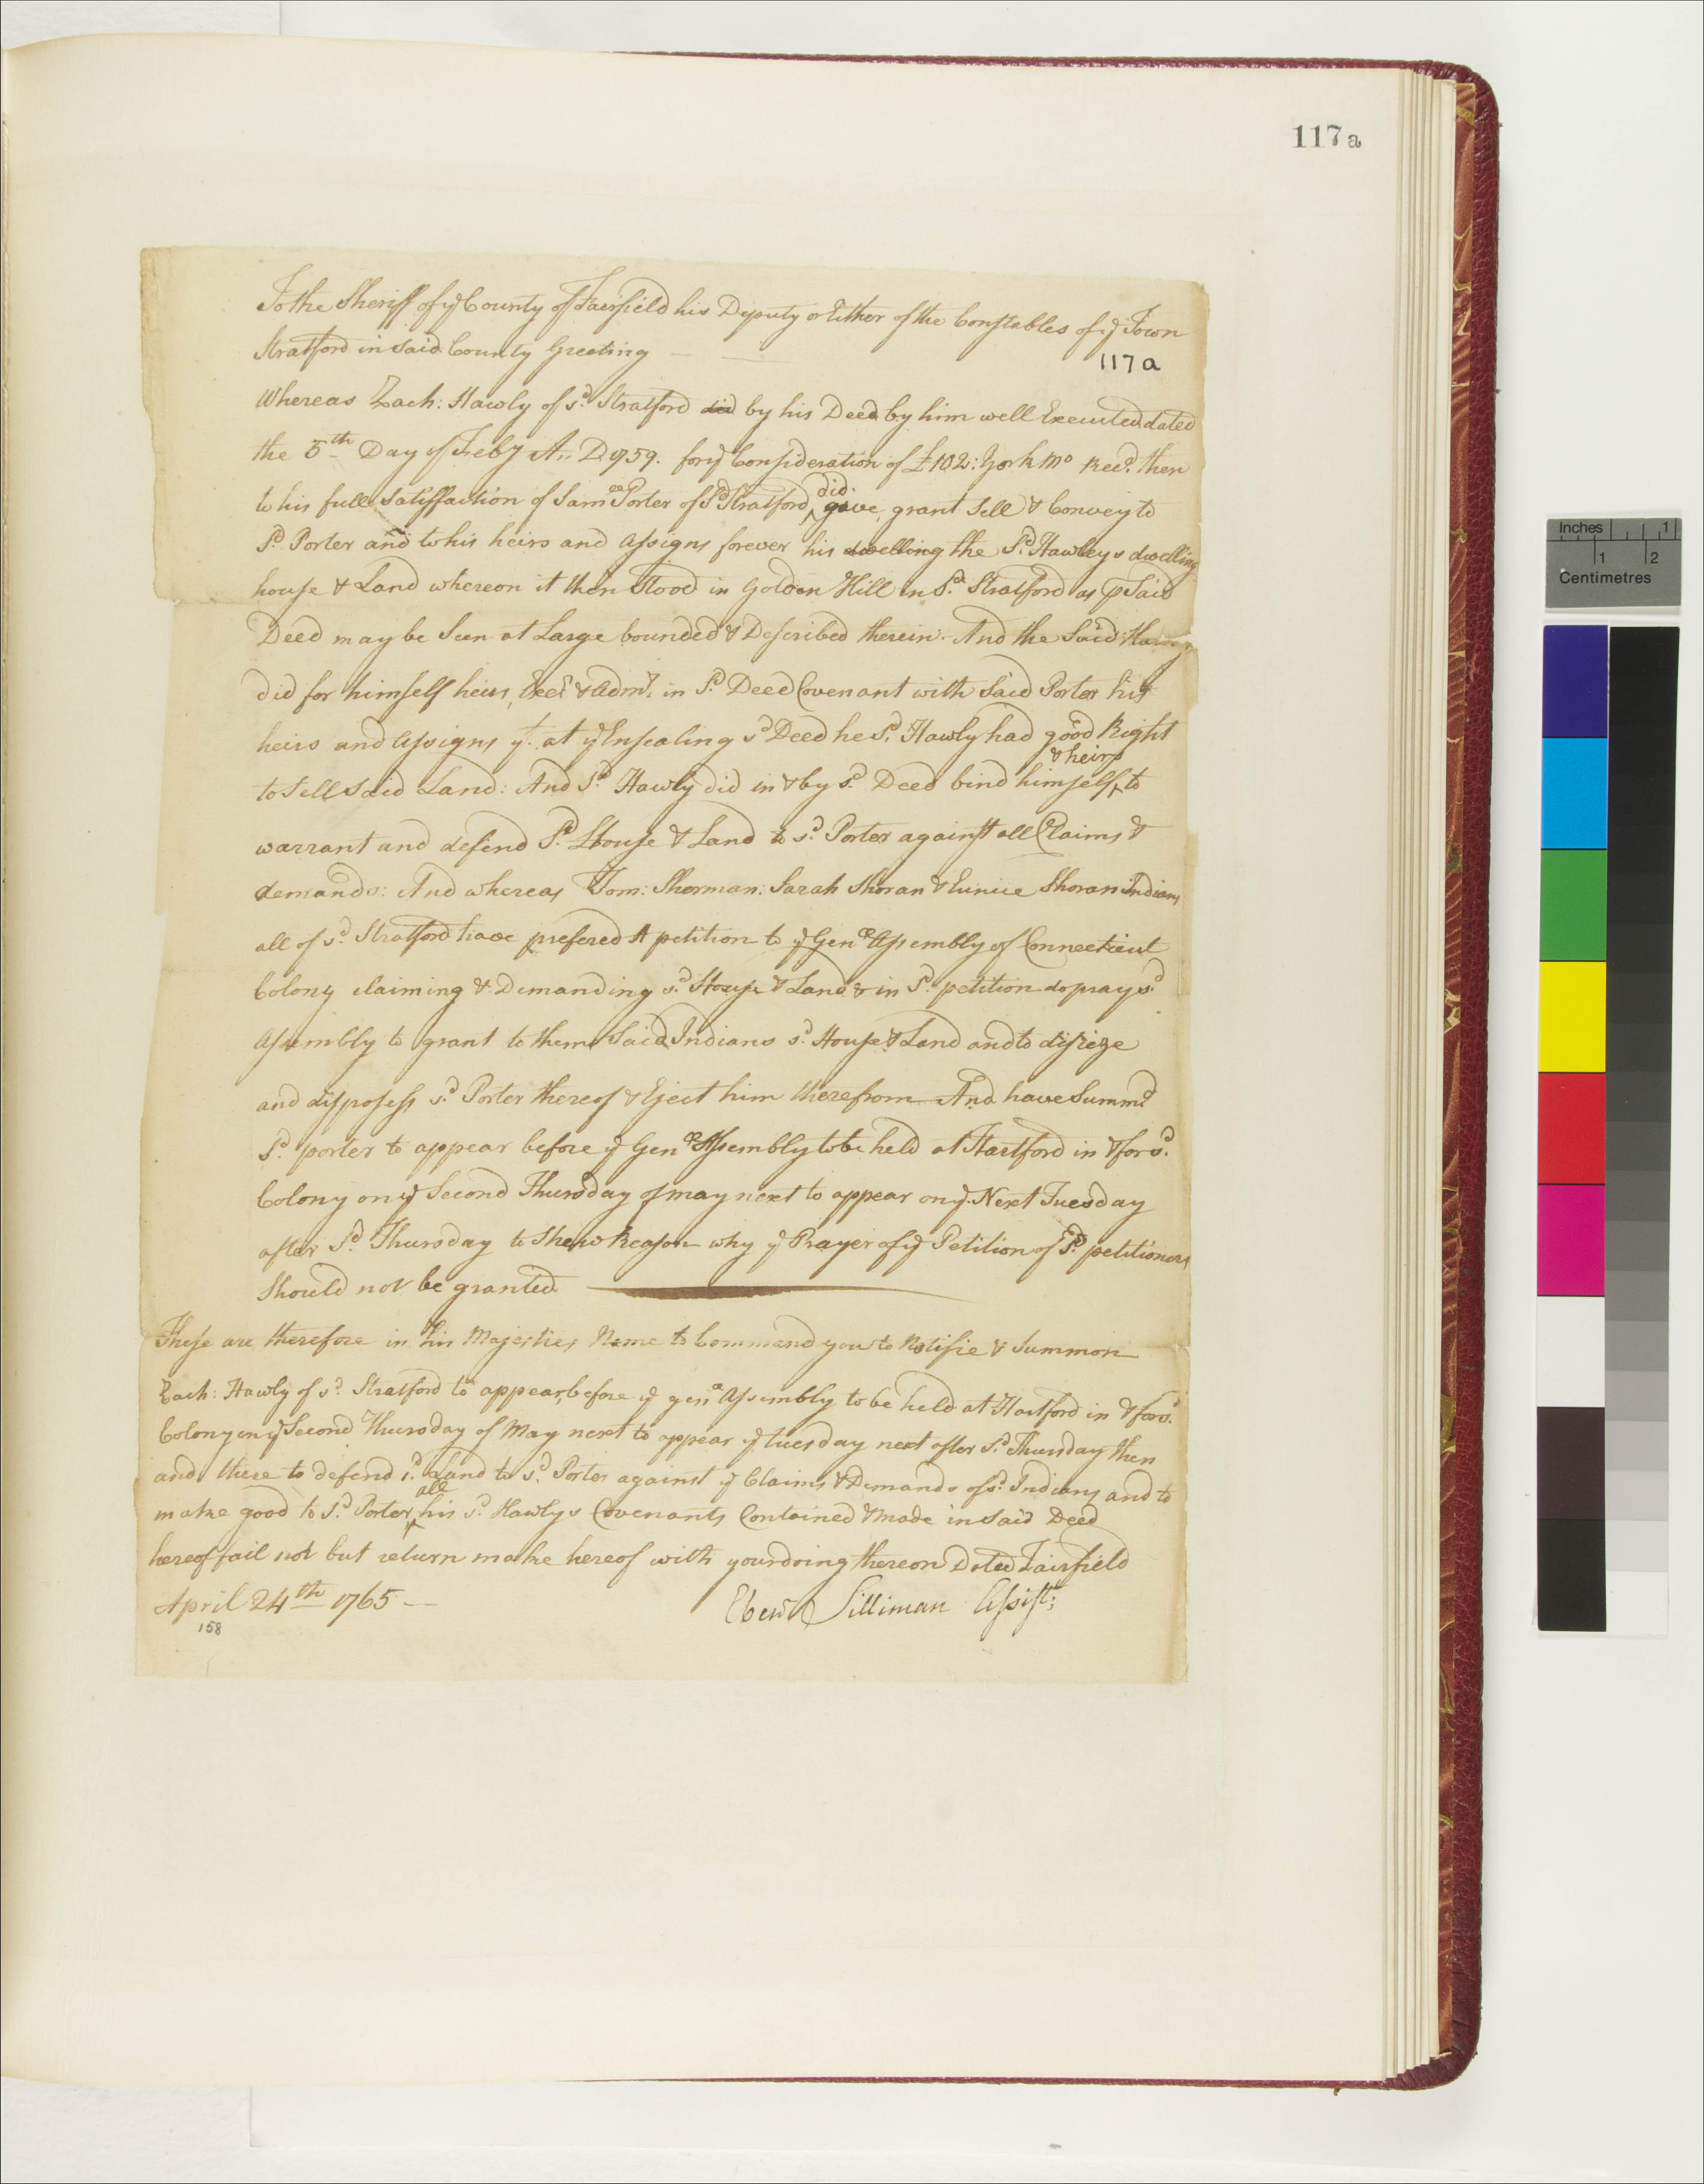 117a
To the Sheriff of ye County of Fairfield his Deputy or Either of the Constables of ye Town
Stratford in said County Greeting
117a
Whereas Zach: Hawly of sd. Stratford did by his Deed by him well Executed dated
the 5th Day of Feby A,, D 1759. for ye Consideration of £102: York Mo Recd. then
to his full satisfaction of Samll Porter of Sd Stratford did give, grant Sell & Convey to
Sd. Porter and to his heirs and Assigns forever his dwelling the Sd. Hawleys dwelling
house & Land whereon it then Stood in Golden Hill in Sd. Stratford as p Said
Deed may be Seen at Large bounded & Described therein. And the Said Hawly
did for himself heirs, Exec. & Admr. in Sd. Deed Covenant with Said Porter his
heirs and Assigns yt. at ye Ensealing sd Deed he Sd. Hawly had good Right
to Sell Said Land: And Sd. Hawly did in & by sd. Deed bind himself & heirs to
warrant and defend Sd. House & Land to sd. Porter against all Claims &
demands: And whereas Tom: Sherman: Sarah Shoran & Eunice Shoran Indians
all of sd. Stratford have prefered A petition to ye Genll Assembly of Connecticut
Colony claiming & Demanding sd. House & Land & in Sd. petition do pray sd.
Assembly to grant to them Said Indians sd. House & Land and to disieze
and disposess sd. Porter thereof & Eject him therefrom And have Summd
Sd. porter to appear before ye Genll Assembly to be held at Hartford in & for sd.
Colony on ye Second Thursday of may next to appear on ye Next Tuesday
after Sd. Thursday to Shew Reason why ye Prayer of ye Petition of Sd. petitioners
Should not be granted
These are therefore in his Majesties Name to Command you to Notifie & Summon
Zach: Hawly of sd. Stratford to appear before ye genll Assembly to be held at Hartford in & for sd.
Colony on ye Second Thursday of May next to appear ye tuesday next after Sd. Thursday then
and there to defend sd. Land to sd. Porter against ye Claims & Demands of sd. Indians and to
make good to Sd. Porter all his sd. Hawlys Covenants Contained & made in Said Deed
hereof fail not but return make hereof with your doing thereon Dated Fairfield
April 24th 1765
Ebenr Silliman Assist;
158
Inches 1
1 2
Centimetres